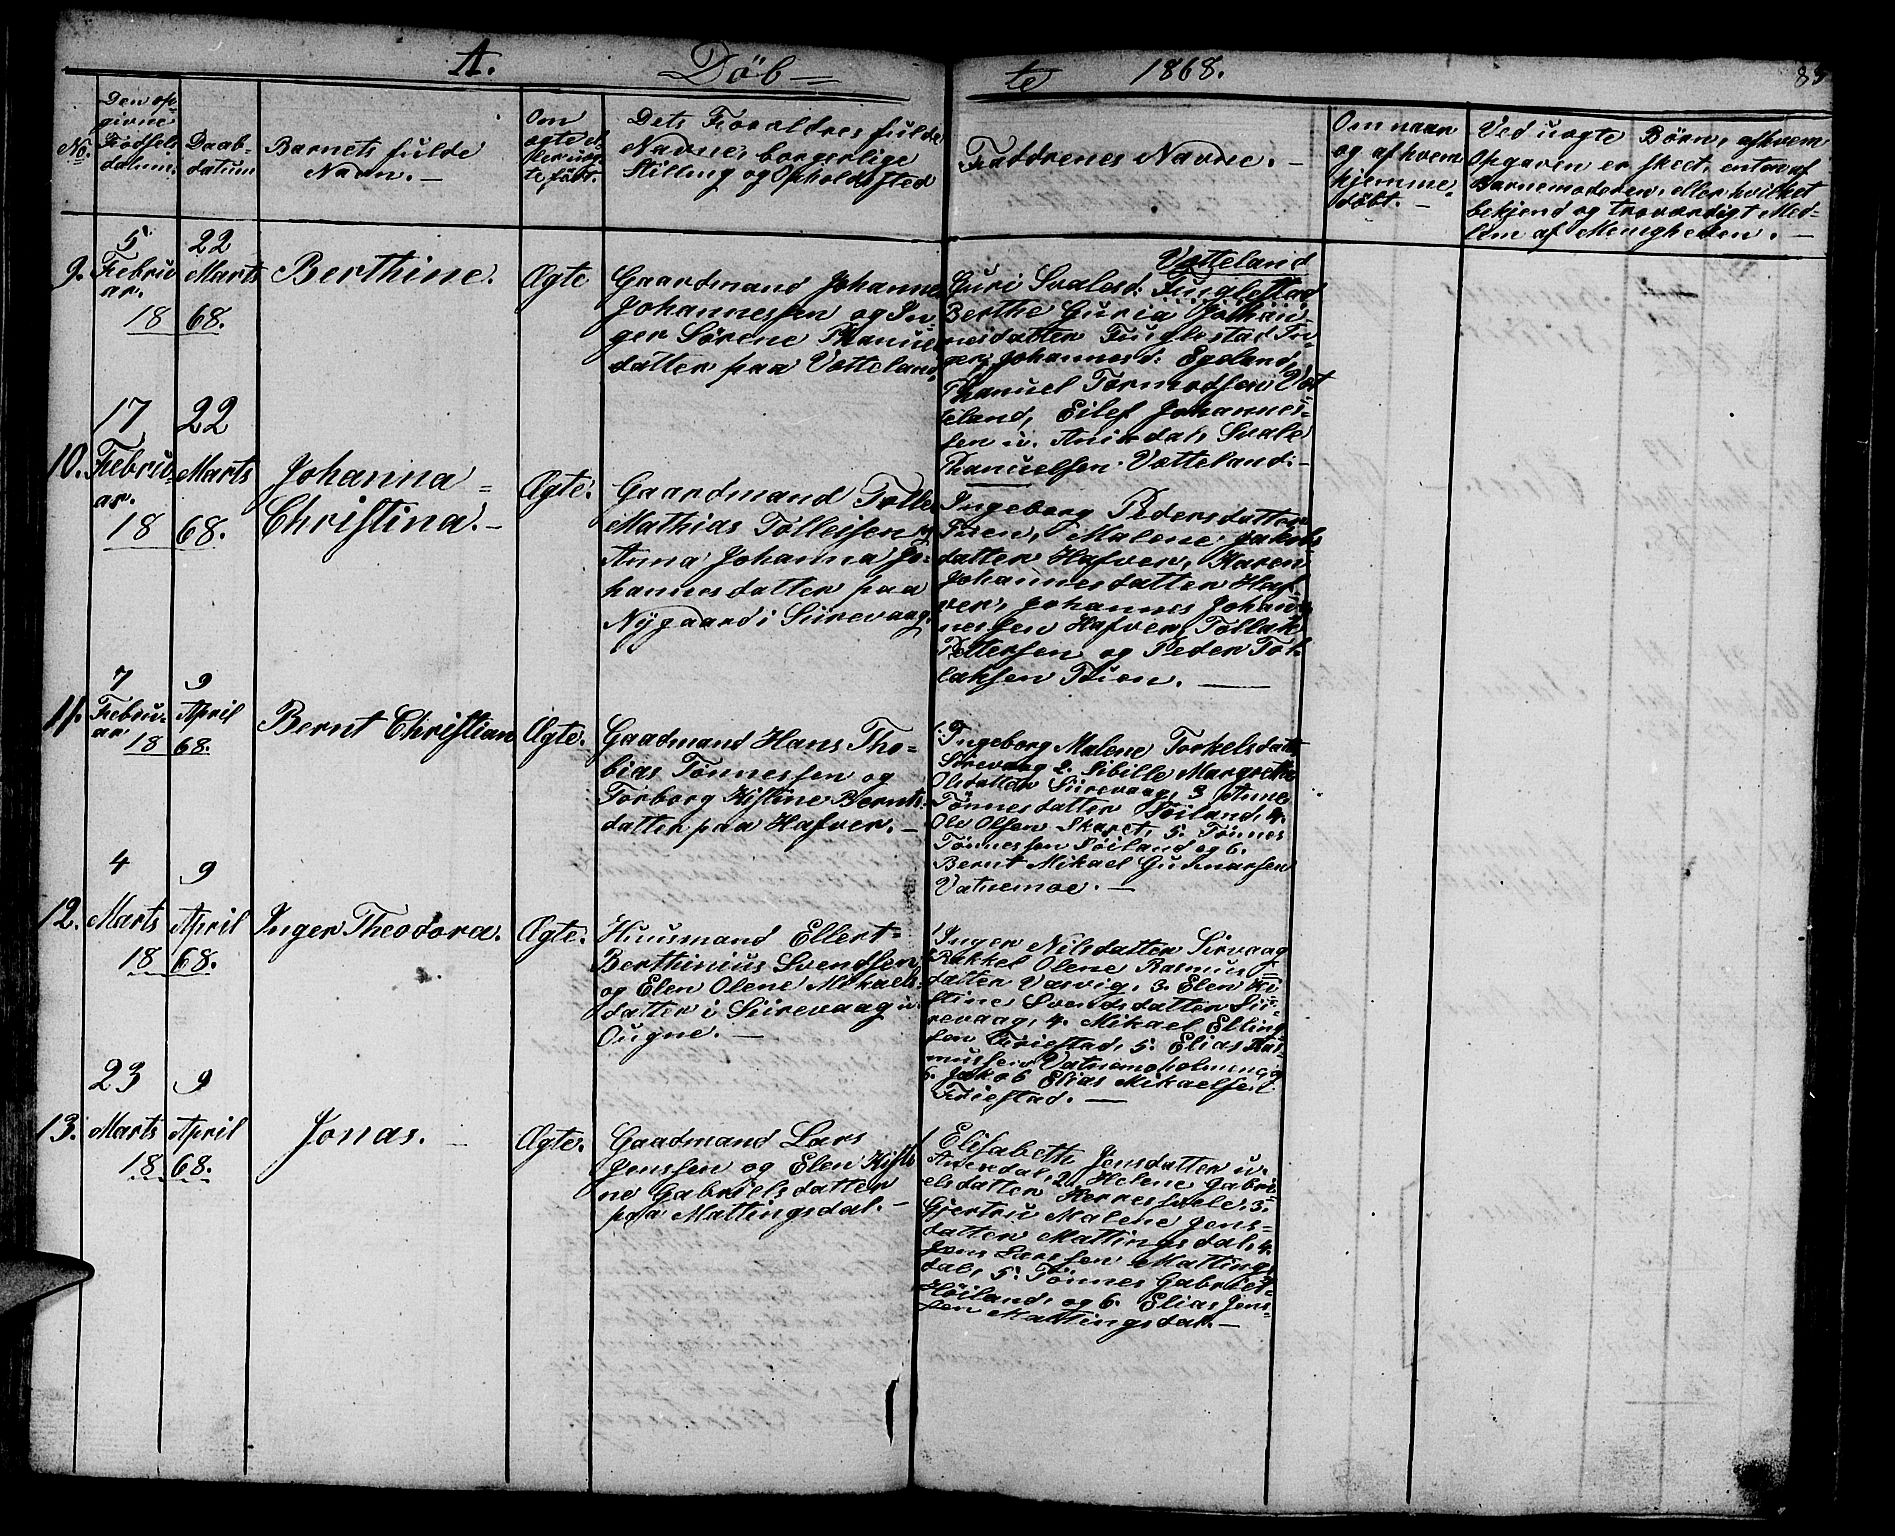 A. Döb = te 1868. 85
No.
Den op-
givne
Fødsels
datum.
Daab-
datum
Barnets fulde
Navn. —
Om
ægte el-
ler uæg-
te født.
Dets Forældres fulde
Navne, borgerlige
Stilling og Opholdssted
Faddrenes Navne. —
Om naar
og af hvem
hjemme-
døbt. —
Ved uægte Børn, af hvem
Opgaven er skeet, enten af
Barnemoderen, eller hvilket
bekjend og troværdigt Med-
lem af Menigheden. —
9.
5
Febru
ar.
18
22
Marts
68.
Berthine.
Ægte
Gaardmand Johannes
Johannessen og In-
ger Sørene Thanuels
datter paa Vatteland.
Vatteland
Guri Svalesd. Fuglestad
Berthe Guria Johan-
nesdatter Fuglestad In-
ger Johannesd. Egeland,
Thanuel Tormodsen Vat
teland, Eilef Johannes-
sen u. Anisdal, Svale
Thanuelsen Vatteland. —
10.
17
Febru-
ar.
18
22
Marts
68.
Johanna =
Christina. —
Ægte.
Gaardmand Tolle
Mathias Tolleifsen og
Anna Johanna Jo-
hannesdatter paa
Nygaard i Siirevaag.
Ingeborg Pedersdatter
Tuen, Malene Jakobs-
datter Hafver, Karen
Johannesdatter Haf-
ver, Johannes Johan-
nessen Hafver, Tollak
Pettersen og Peder Tol-
laksen Tuen. —
11.
7
Febru-
ar
18
9
April
68.
Bernt Christian
Ægte.
Gaadmand Hans Tho-
bias Tønnessen og
Torborg Kistine Bernts-
datter paa Hafver. —
1. Ingeborg Malene Torkelsdatt
Sirevaag 2. Sibille Margrethe
Olsdatter Siirevaag, 3 Anne
Tønnesdatter Søiland, 4.
Ole Olsen Skaret, 5. Tønnes
Tønnessen Søiland og 6.
Bernt Mikael Gunnarsen
Vatnemoe. —
12.
4
Marts
18
9
April
68.
Inger Theodora.
Ægte.
Huusmand Ellert =
Berthinius Svendsen
og Elen Olene Mikaels-
datter i Siirevaag u.
Ougne. —
1. Inger Nilsdatter Sirvaag
Rakkel Olene Rasmus =
datter Vasvig, 3. Elen Ki
stine Svendsdatter Sii-
revaag, 4. Mikael Elling
sen Triestad, 5. Elias Ras-
mussen Vatnemoholmen og
6. Jakob Elias Mikaelsen
Triestad. —
13.
23
Marts
18
9
April
68.
Jonas. —
Ægte.
Gaadmand Lars
Jenssen og Elen Kisti
ne Gabrielsdatter
paa Mattingsdal. —
1 Elisabeth Jensdatter u.
Anisdal, 2. Helene Gabri-
elsdatter Herresvele, 3.
Gjertru Malene Jens-
datter Mattingsdal, 4.
Jens Larssen Mattings
dal, 5. Tønnes Gabriel-
Høiland, og 6. Elias Jens-
sen Mattingsdal. —